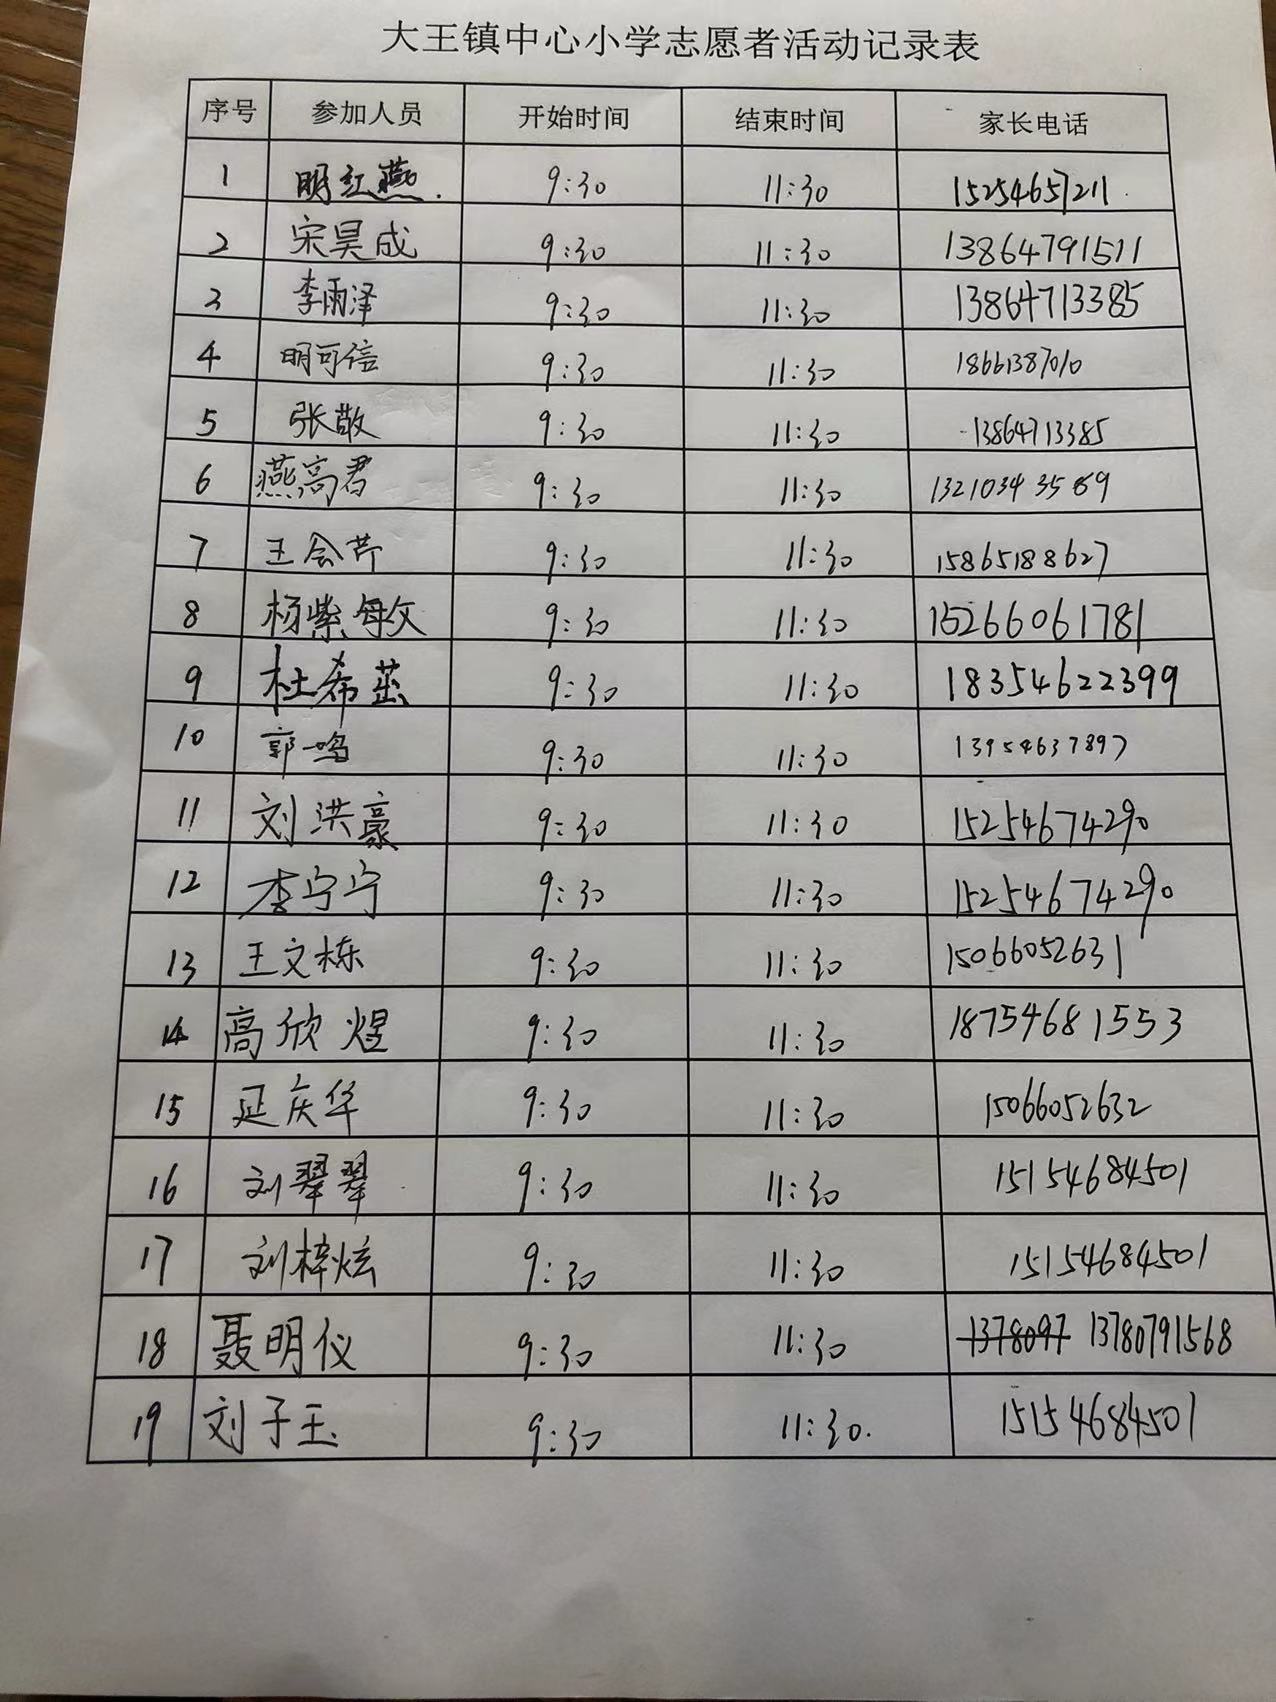 大王镇中心小学志愿者活动记录表
序号 参加人员 开始时间 结束时间 家长电话
1 明红燕. 9:30 11:30 15254657211.
2 宋昊成 9:30 11:30 13864791511
3 李雨泽 9:30 11:30 13864713385
4 明可信 9:30 11:30 18661387010
5 张敬 9:30 11:30 13864713385
6 燕高君 9:30 11:30 13210343569
7 王会芹 9:30 11:30 15865188627
8 杨紫敏 9:30 11:30 15266061781
9 杜希 9:30 11:30 18354622399
10 郭鸣 9:30 11:30 13954637897
11 刘洪豪 9:30 11:30 15254674290
12 李宁宁 9:30 11:30 15254674290
13 王文栋 9:30 11:30 15066052631
14 高欣煜 9:30 11:30 18754681553
15 延庆华 9:30 11:30 15066052632
16 刘翠翠 9:30 11:30 15154684501
17 刘梓炫 9:30 11:30 15154684501
18 聂明仪 9:30 11:30 1378097 13780791568
19 刘子玉 9:30 11:30. 15154684501